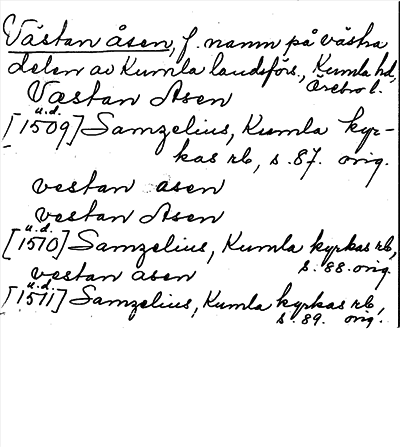 Västan åsen, f. namn på västra
delen av Kumla landsförs., Kumla hd,
Örebro l.
Væstan Asen
u.d.
[1509] Samzelius, Kumla kyr-
kas rb, s. 87. orig.
vestan asen
vestan Asen
u.d.
[1510] Samzelius, Kumla kyrkas rb,
s. 88. orig.
vestan asen
u.d.
[1511] Samzelius, Kumla kyrkas rb,
s. 89. orig.